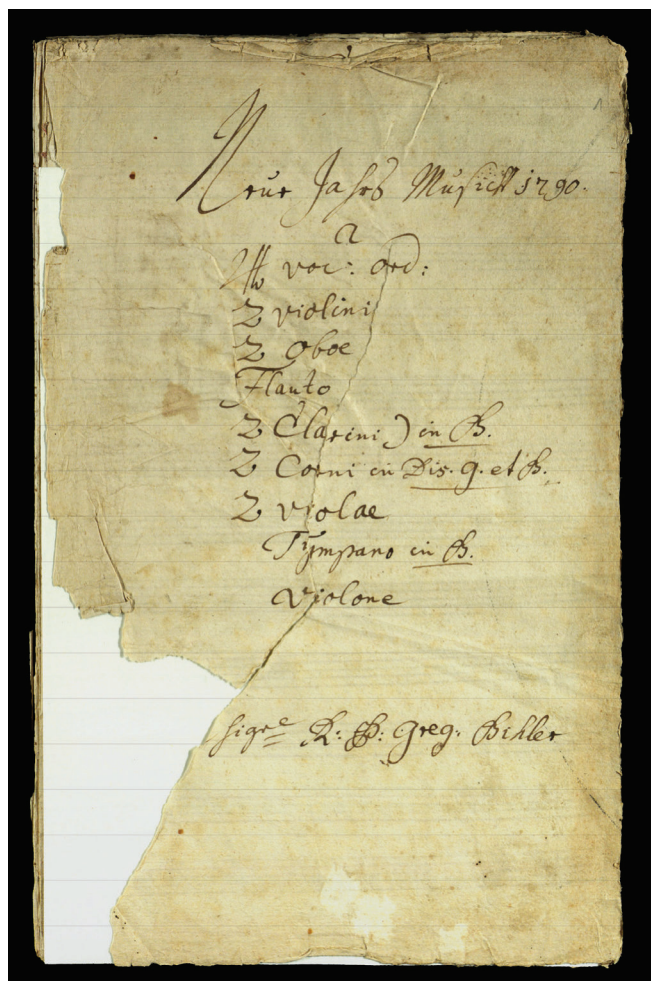 Neue Jahrs Musick 1790.
a
4 voc: ord:
2 violini
2 Oboe
Flauto
2 Clarini) in B.
2 Corni in Dis. G. et B.
2 violae
Tympano in B.
violone
Sigre R: P: Greg. Bihler